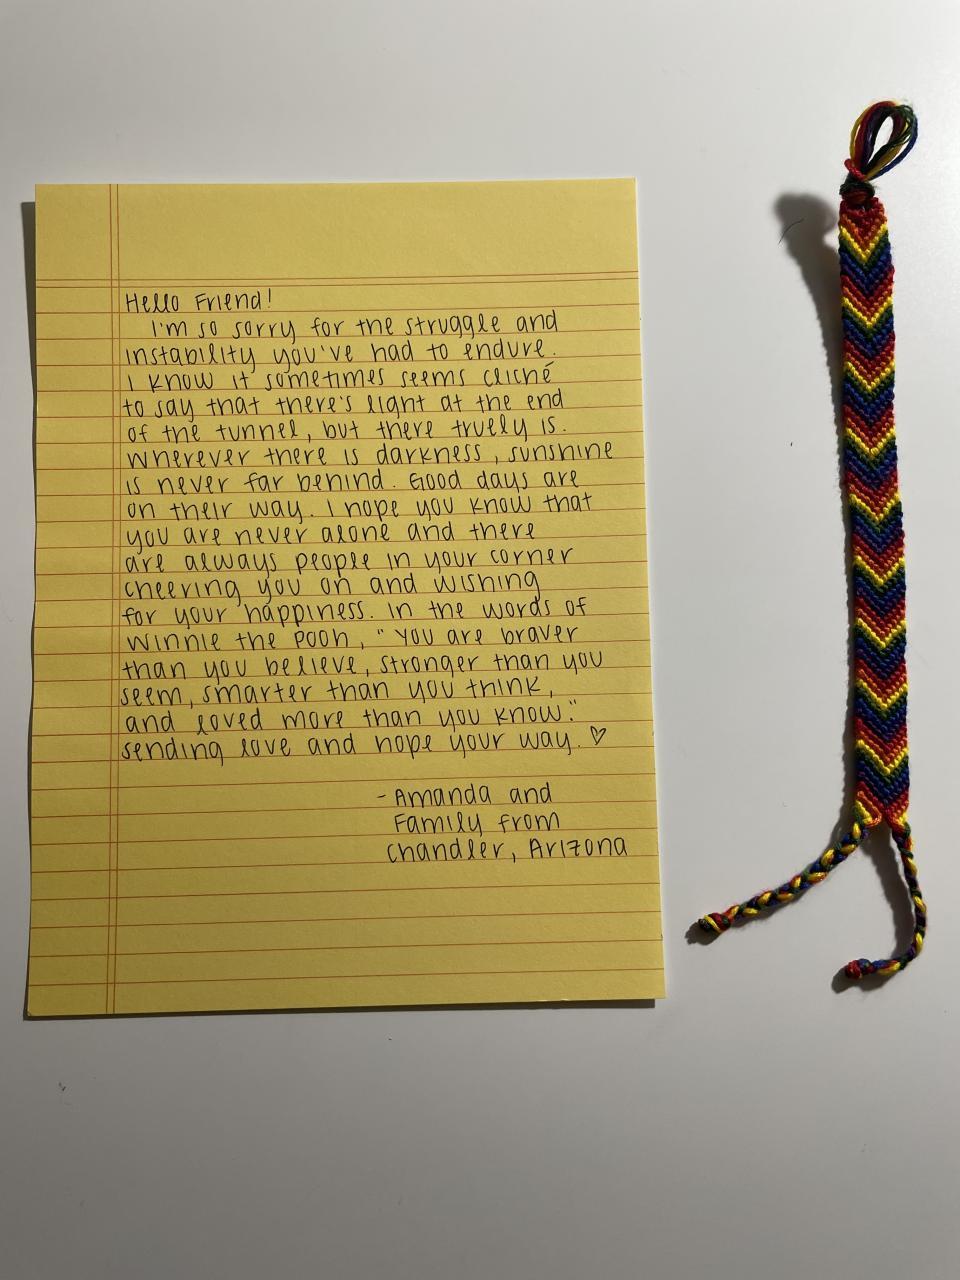 Hello Friend!
I'm so sorry for the struggle and
instability you've had to endure.
I know it sometimes seems cliché
to say that there's light at the end
of the tunnel, but there truely is.
Wherever there is darkness, sunshine
is never far behind. Good days are
on their way. I hope you know that
you are never alone and there
are always people in your corner
cheering you on and wishing
for your happiness. In the words of
Winnie the Pooh, "You are braver
than you believe, stronger than you
seem, smarter than you think,
and loved more than you know."
Sending love and hope your way. ♡
- Amanda and
Family from
Chandler, Arizona